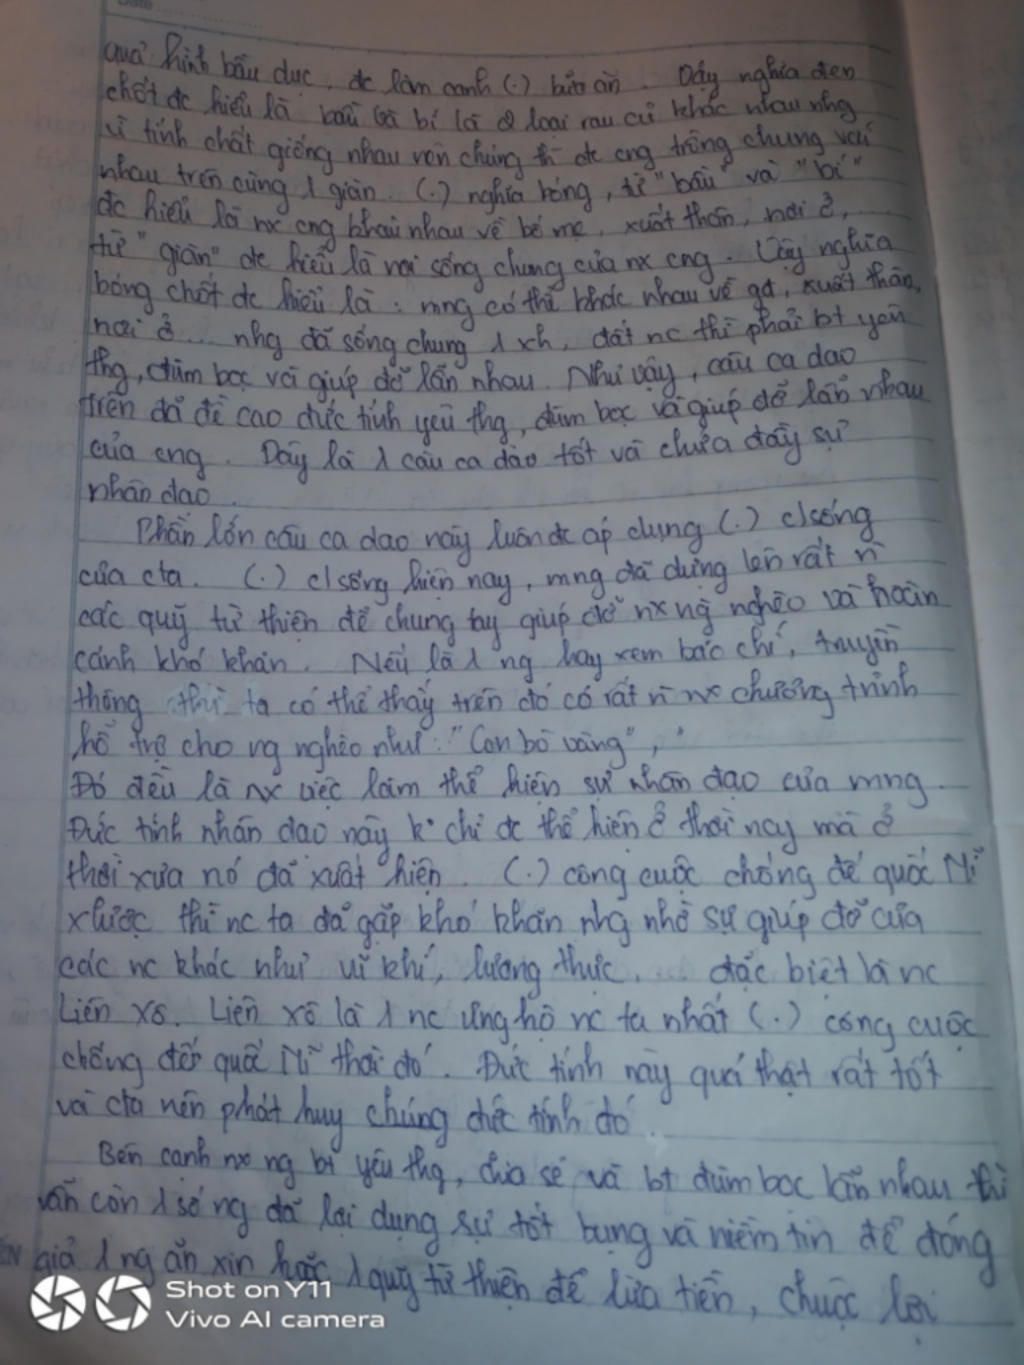 quả hình bầu dục, đc làm canh (.) bữa ăn. Dậy nghĩa đen
chốt đc hiểu là bầu và bí là 2 loại rau củ khác nhau nhg
vì tính chất giống nhau nên chúng thì đc cng trồng chung vái
nhau trên cùng 1 giàn. (.) nghĩa bóng, từ "bầu" và "bí"
đc hiểu là nx cng khai nhau về bố mẹ, xuất thân, nơi ở,
từ "giàn" đc hiểu là nơi sống chung của nx cng. Vậy nghĩa
bóng chốt đc hiểu là: mng có thể khác nhau về gđ, xuất thân,
nơi ở... nhg đã sống chung 1 xh, đất nc thì phải bt yêu
thg, đùm bọc và giúp đỡ lẫn nhau. Như vậy, câu ca dao
trên đã đề cao đức tính yêu thg, đùm bọc và giúp đỡ lẫn nhau
của cng. Đây là 1 câu ca dao tốt và chứa đầy sự
nhân đạo.
Phần lớn câu ca dao này luôn đc áp dụng (.) c/sống
của cta. (.) c/sống hiện nay, mng đã dựng lên rất nì
các quỹ từ thiện để chung tay giúp đỡ nx ng nghèo và hoàn
cảnh khó khăn. Nếu là 1 ng hay xem báo chí, truyền
thông thì ta có thể thấy trên đó có rất nì nx chương trình
hỗ trợ cho ng nghèo như: "Con bò vàng", "
Đó đều là nx việc làm thể hiện sự nhân đạo của mng.
Đức tính nhân đạo này k° chỉ đc thể hiện ở thời nay mà ở
thời xưa nó đã xuất hiện. (.) công cuộc chống đế quốc Mĩ
xlược thì nc ta đã gặp khó khăn nhg nhờ sự giúp đỡ của
các nc khác như vũ khí, lương thực,... đặc biệt là nc
Liên Xô. Liên xô là 1 nc ủng hộ nc ta nhất (.) công cuộc
chống đế quố Mĩ thời đó. Đức tính này quả thật rất tốt
và cta nên phát huy chúng đức tính đó.
Bên cạnh nx ng bt yêu thg, chia sẻ và bt đùm bọc lẫn nhau thì
vẫn còn 1 số ng đã lợi dụng sự tốt bụng và niềm tin để đóng
giả 1 ng ăn xin hoặc 1 quỹ từ thiện để lừa tiền, chuộc lợi
Shot on Y11
Vivo AI camera